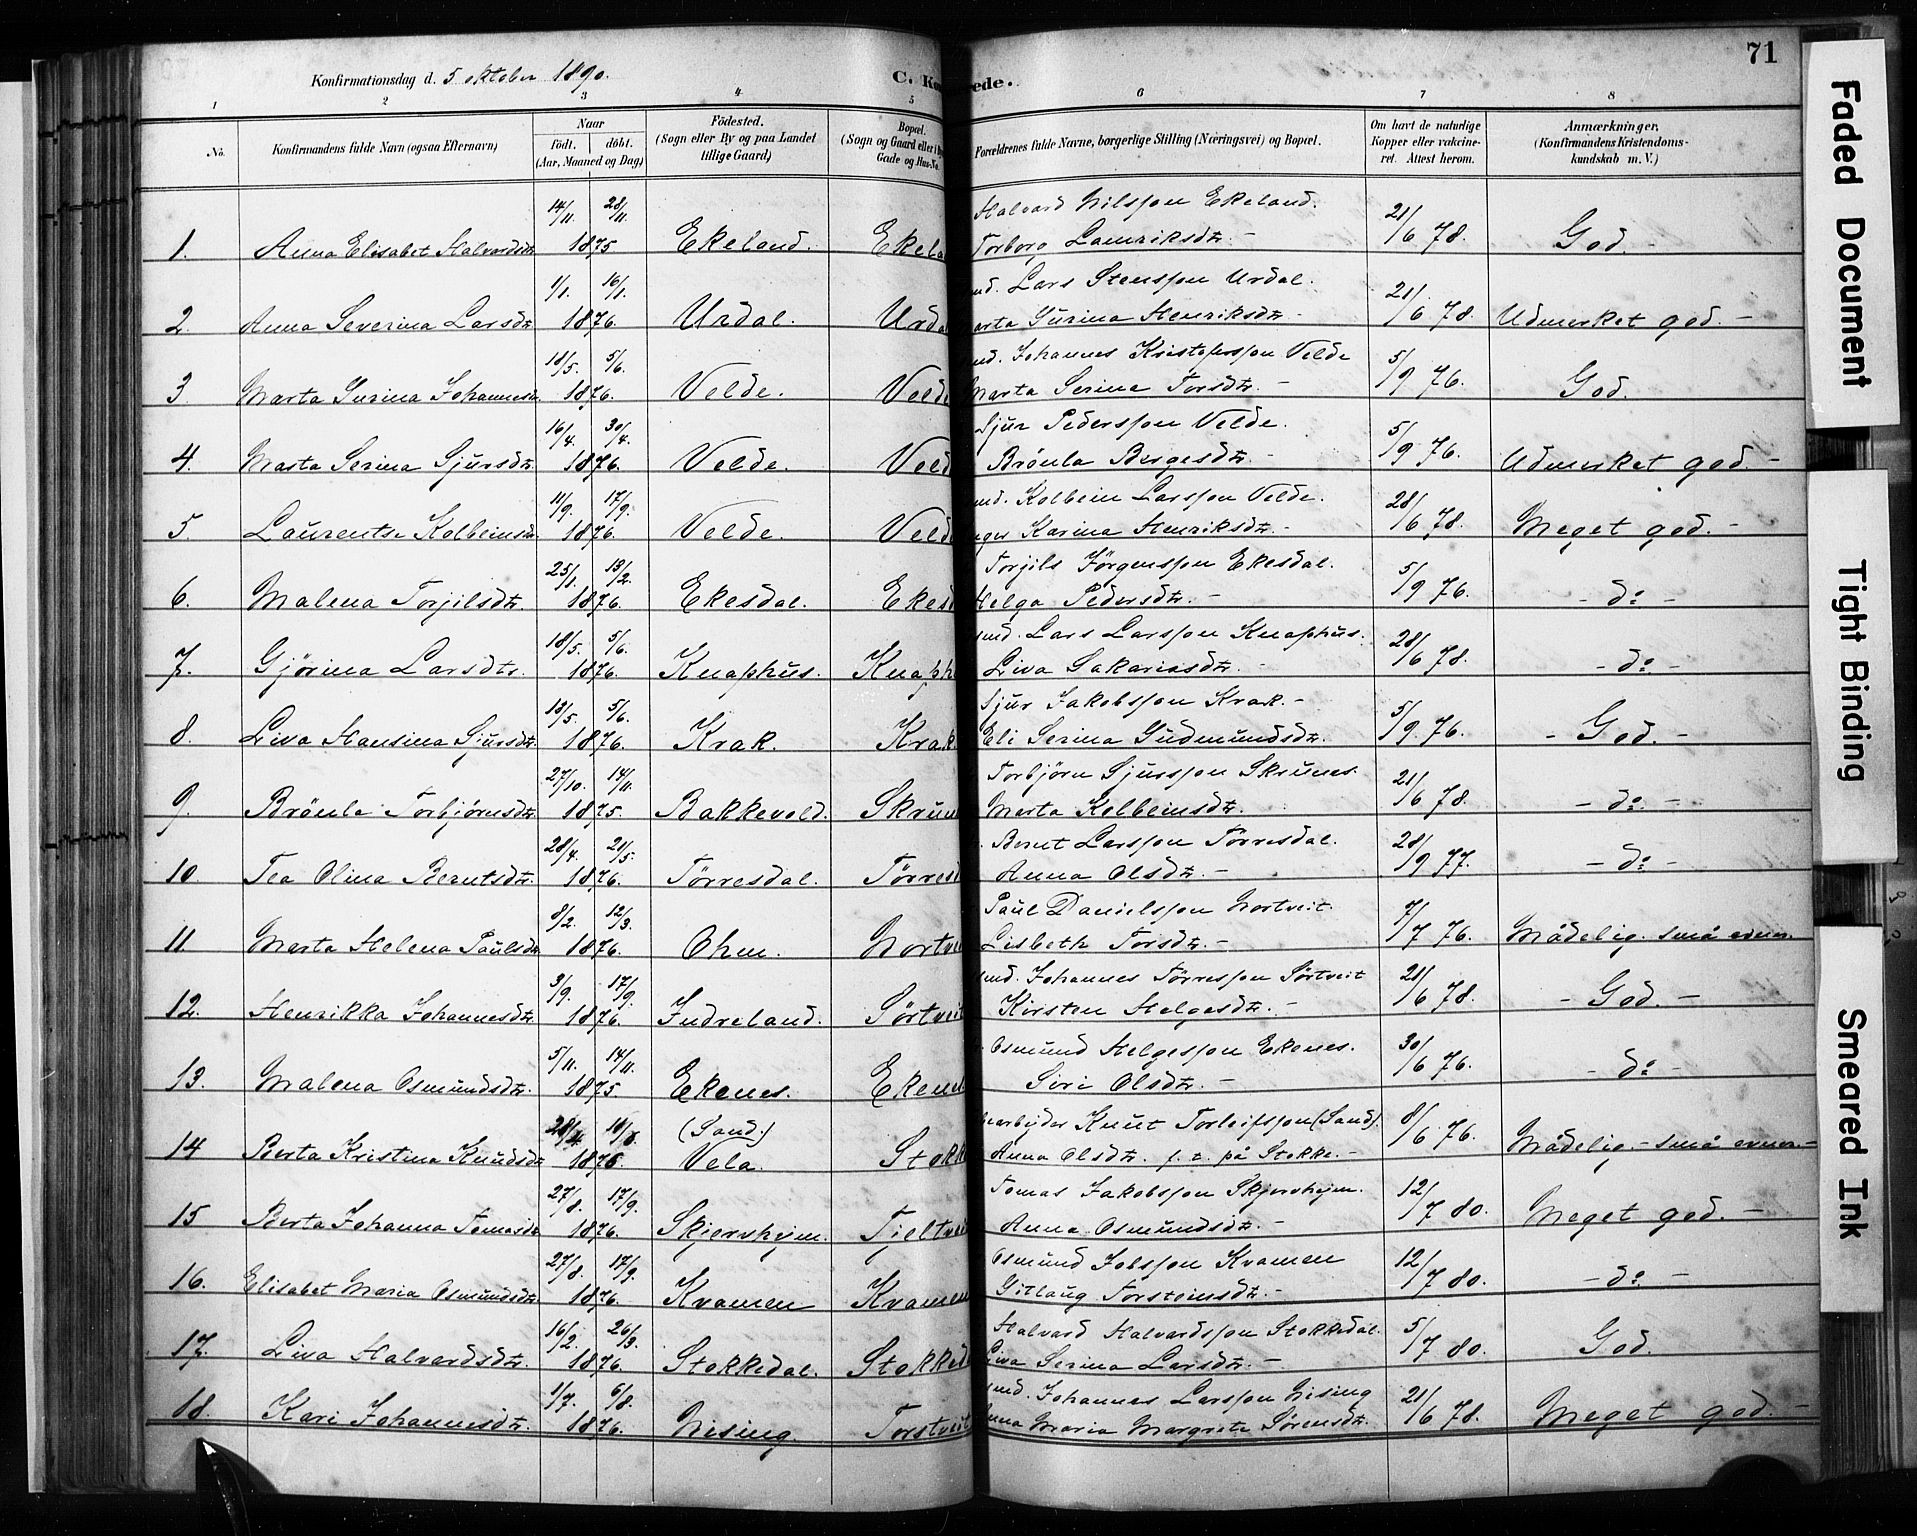 71
Konfirmationsdag d. 5 oktober 1890.
C. Ko ede.
1 2 3 4 5 6 7 8
No.
Konfirmandens fulde Navn (ogsaa Efternavn)
Naar
födt. döbt.
(Aar, Maaned og Dag)
Födested.
(Sogn eller By og paa Landet
tillige Gaard)
Bopæl.
(Sogn og Gaard eller i By
Gade og Hus-No.
Forældrenes fulde Navne, borgerlige Stilling (Næringsvei) og Bopæl.
Om havt de naturlige
Kopper eller vakcine-
ret. Attest herom.
Anmærkninger.
(Konfirmandens Kristendoms-
kundskab m. V.)
14/11 28/11 Halvard Nilsson Ekeland. 21/6 78.
1. Anna Elisabet Halvardsdtr 1875 Ekeland. Ekela Torborg Lauriksdtr. - God -
1/1. 16/1. nd. Lars Stensson Urdal. 21/6 78.
2. Anna Severina Larsdtr 1876. Urdal. Urda arta Gurina Henriksdtr - Udmerket god. -
18/5. 5/6. nd. Johannes Kristofersson Velde 5/9 76.
3. Marta Gurina Johannesd. 1876. Velde. Velde Marta Serina Torsdtr. - God.
16/4. 30/4. Sjur Pedersson Velde. 5/9 76.
4. Marta Serina Sjursdtr. 1876. Velde. Veld Brönla Bergesdtr. - Udmerket god. -
11/9. 17/9. nd. Kolbein Larsson Velde. 28/6 78.
5. Laurentse Kolbeinsd. 1876. Velde. Veld nger Karina Henriksdtr. - Meget god. -
25/1. 13/2. Torjils Jörgensson Ekesdal. 5/9 76.
6. Malena Torjilsdtr. 1876. Ekesdal. Ekesd Helga Pedersdtr. - - do -
18/5. 5/6. md. Lars Larsson Knaphus. 28/6 78.
7. Gjörina Larsdtr. 1876. Knaphus. Knaph Liva Sakariasdtr. - - do -
13/5. 5/6. Sjur Jakobsson Krak. - 5/9. 76.
8. Liva Hansina Sjursdtr. 1876. Krak. Krak Eli Serina Gudmundsdtr. - God. -
27/10. 14/11. Torbjörn Sjursson Skrunes. 21/6 78.
9. Brönla Torbjörnsdtr 1875. Bakkevold. Skrun Marta Kolbeinsdtr. - do -
28/4. 21/5. Bernt Larsson Törresdal. 28/9 77.
10. Tea Olina Berntsdtr. 1876. Törresdal. Törresd Anna Olsdtr. - - do -
8/2. 12/3. Paul Danielsson Nortveit. 7/7 76.
11. Marta Helena Paulsdtr 1876. Ohm. Nortve Lisbeth Torsdtr. - Mådelig. små evner.
3/9. 17/9. md. Johannes Törresson Sörtveit 21/6 78.
12. Henrikka Johannesdtr. 1876. Indreland. Sörtveit Kirsten Helgesdtr. - - God. -
5/11. 14/11. Osmund Helgesson Ekenes. 30/6 76.
13. Malena Osmundsdtr. 1875. Ekenes. Ekene Siri Olsdtr. - - do -
(Sand.) earbejder Knut Torleifsson (Sand). 8/6 76.
14 Berta Kristina Knudsdtr 1876. Vela. Stokk Anna Olsdtr. f. t. på Stokke. - Mådelig. - små evner. -
27/8. 17/9. Tomas Jakobsson Skjervhejm. 12/7 80.
15 Berta Johanna Tomasdtr 1876. Skjervhejm. Tjeltve Anna Osmundsdtr. - Meget god. -
27/8. 17/9. Osmund Jobsson Kvamen 12/7 80.
16. Elisabet Maria Osmundsdtr. 1876. Kvamen Kvamen Gitlaug Torsteinsdtr. - - do -
16/2. 26/3. Halvard Halvardsson Stokkedal. 5/7 80.
17. Liva Halvardsdtr. 1876. Stokkedal. Stokked Liva Serina Larsdtr. - God.
1/7. 6/8. md. Johannes Larsson Nising 21/6 78.
18. Kari Johannesdtr. 1876. Nising. Torstveit nna Maria Margrete Sörensdtr. Meget god -
Faded Document
Tight Binding
Smeared Ink